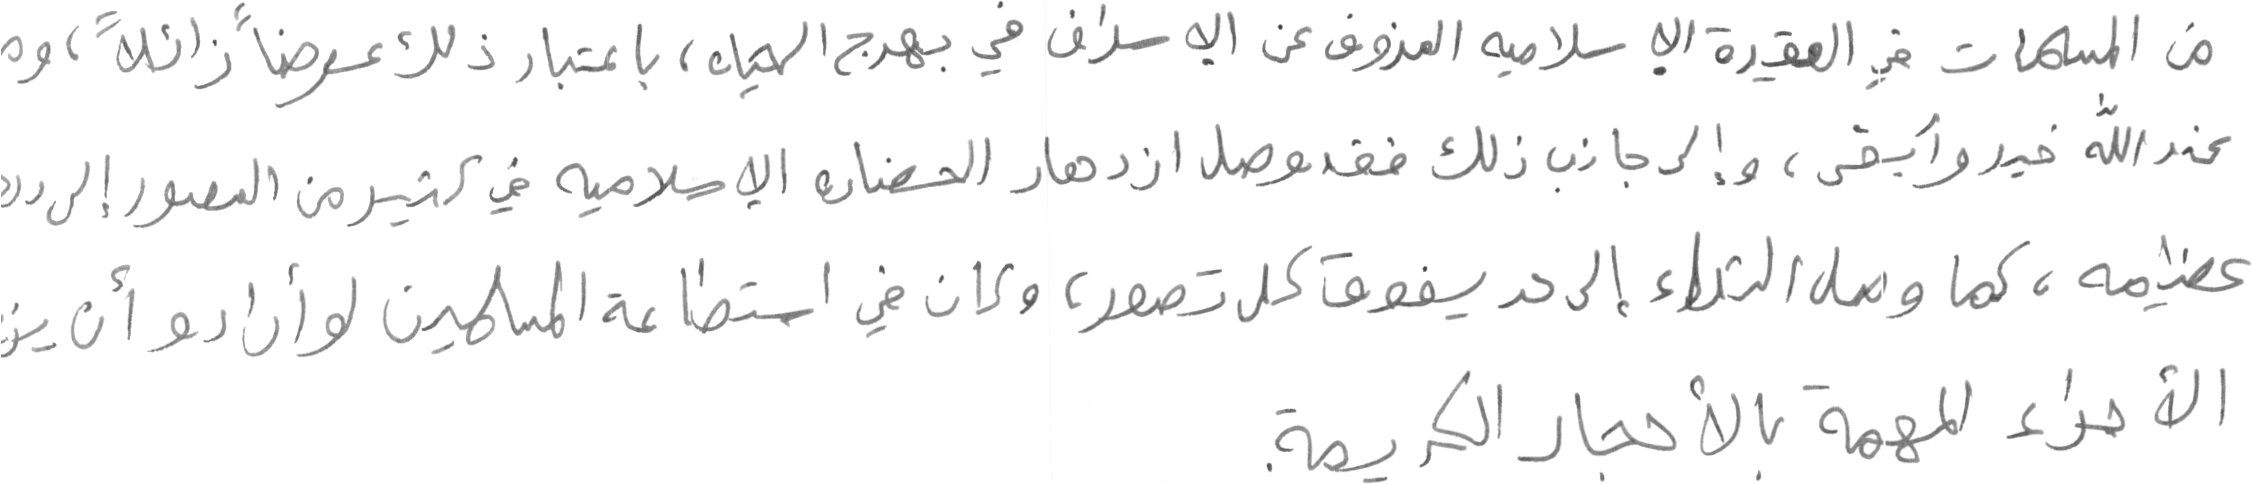 من المسلمات في العقيدة الإسلاميه العزوف عن الإسراف في بهرج الحياه، باعتبار ذلك عرضاً زائلاً، وم
عند الله خير وأبقى، وإلى جانب ذلك فقد وصل ازدهار الحضاره الإسلاميه في كثير من العصور إلى در
عظيمه، كما وصل الثراء إلى حد يفوق كل تصور، وكان في استطاعة المسلمين لو أرادو أن يز
الأجزاء المهمة بالأحجار الكريمة.